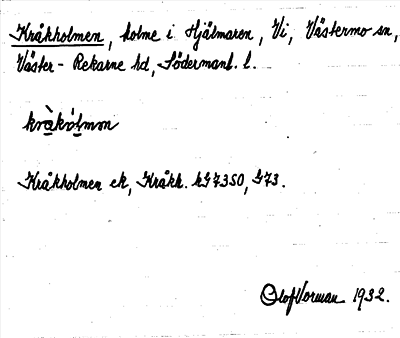 Kråkholmen, holme i Hjälmaren, Vi, Västermo sn,
Väster-Rekarne hd, Södermanl. l.
krằkólmɘn
Kråkholmen ek, Kråkh. hG7350, G73.
Olof Vorman 1932.